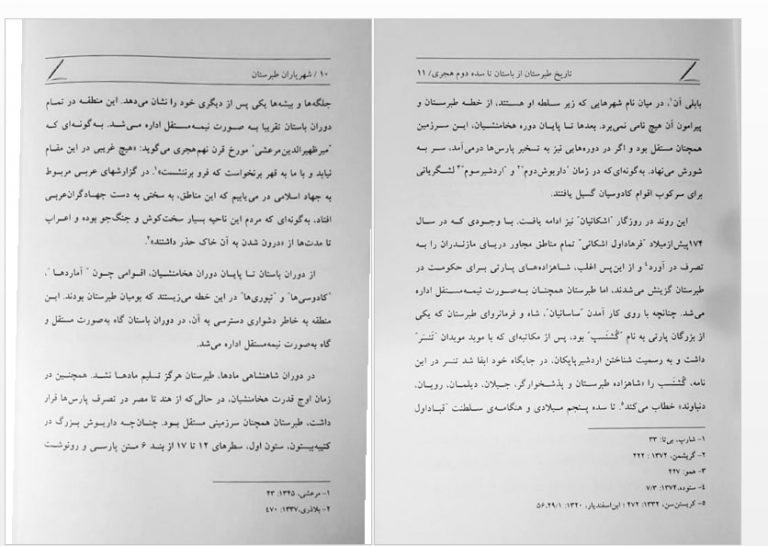 ۱۰ / شهریاران طبرستان
جلگه‌ها و بیشه‌ها یکی پس از دیگری خود را نشان می‌دهد. این منطقه در تمام
دوران باستان تقریبا به صورت نیمه‌مستقل اداره می‌شد. به‌گونه‌ای که
"میرظهیرالدین‌مرعشی" مورخ قرن نهم‌هجری می‌گوید: «هیچ غریبی در این مقام
نیاید و با ما به قهر برنخواست که فرو برننشست»۱. در گزارشهای عربی مربوط
به جهاد اسلامی در می‌یابیم که این مناطق، به سختی به دست جهادگران‌عربی
افتاد، به‌گونه‌ای که مردم این ناحیه بسیار سخت‌کوش و جنگ‌جو بوده و اعراب
تا مدت‌ها از «درون شدن به آن خاک حذر داشتند»۲.
از دوران باستان تا پایان دوران هخامنشیان، اقوامی چون "آماردها"،
"کادوسی‌ها" و "تپوری‌ها" در این خطه می‌زیستند که بومیان طبرستان بودند. این
منطقه به خاطر دشواری دسترسی به آن، در دوران باستان گاه به‌صورت مستقل و
گاه به‌صورت نیمه‌مستقل اداره می‌شد.
در دوران شاهنشاهی مادها، طبرستان هرگز تسلیم مادها نشد. همچنین در
زمان اوج قدرت هخامنشیان، در حالی‌که از هند تا مصر در تصرف پارس‌ها قرار
داشت، طبرستان همچنان سرزمینی مستقل بود. چنان‌چه داریوش بزرگ در
کتیبه‌بیستون، ستون اول، سطرهای ۱۲ تا ۱۷ از بند ۶ متن پارسی و رونوشت
۱- مرعشی، ۱۳۴۵: ۴۳
۲- بلاذری،۱۳۳۷: ۴۷۰
تاریخ طبرستان از باستان تا سده دوم هجری/ ۱۱
بابلی آن۱، در میان نام شهرهایی که زیر سلطه او هستند، از خطه طبرستان و
پیرامون آن هیچ نامی نمی‌برد. بعدها تا پایان دوره هخامنشیان، این سرزمین
همچنان مستقل بود و اگر در دوره‌هایی نیز به تسخیر پارس‌ها درمی‌آمد، سر به
شورش می‌نهاد. به‌گونه‌ای‌که در زمان "داریوش‌دوم"۲ و "اردشیرسوم"۳ لشگریانی
برای سرکوب اقوام کادوسیان گسیل یافتند.
این روند در روزگار "اشکانیان" نیز ادامه یافت. با وجودی که در سال
۱۷۴پیش‌ازمیلاد "فرهاداول اشکانی" تمام مناطق مجاور دریای مازندران را به
تصرف در آورد۴ و از این‌پس اغلب، شاهزاده‌های پارتی برای حکومت در
طبرستان گزینش می‌شدند، اما طبرستان همچنان به‌صورت نیمه‌مستقل اداره
می‌شد. چنانچه با روی کار آمدن "ساسانیان"، شاه و فرمانروای طبرستان که یکی
از بزرگان پارتی به نام "گُشنَسپ" بود، پس از مکاتبه‌ای که با موبد موبدان "تَنسَر"
داشت و به رسمیت شناختن اردشیرپاپکان، در جایگاه خود ابقا شد تنسر در این
نامه، گُشنَسب را «شاهزاده طبرستان و پذشخوارگر، جیلان، دیلمان، رویان،
دنیاوند» خطاب می‌کند۵. تا سده پنجم میلادی و هنگامه‌ی سلطنت "قباداول
۱- شارپ، بی‌تا: ۳۳
۲- گریشمن، ۱۳۷۲: ۲۲۲
۳- همو: ۲۲۷
۴- ستوده،۱۳۷۴: ۷/۳
۵- کریستن‌سن، ۱۳۳۲: ۴۷۲ ؛ ابن‌اسفندیار، ۱۳۲۰: ۵۶،۲۹/۱